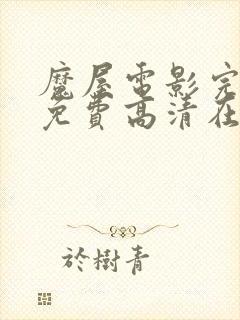 魔屋電影完
免費高清在
於樹青